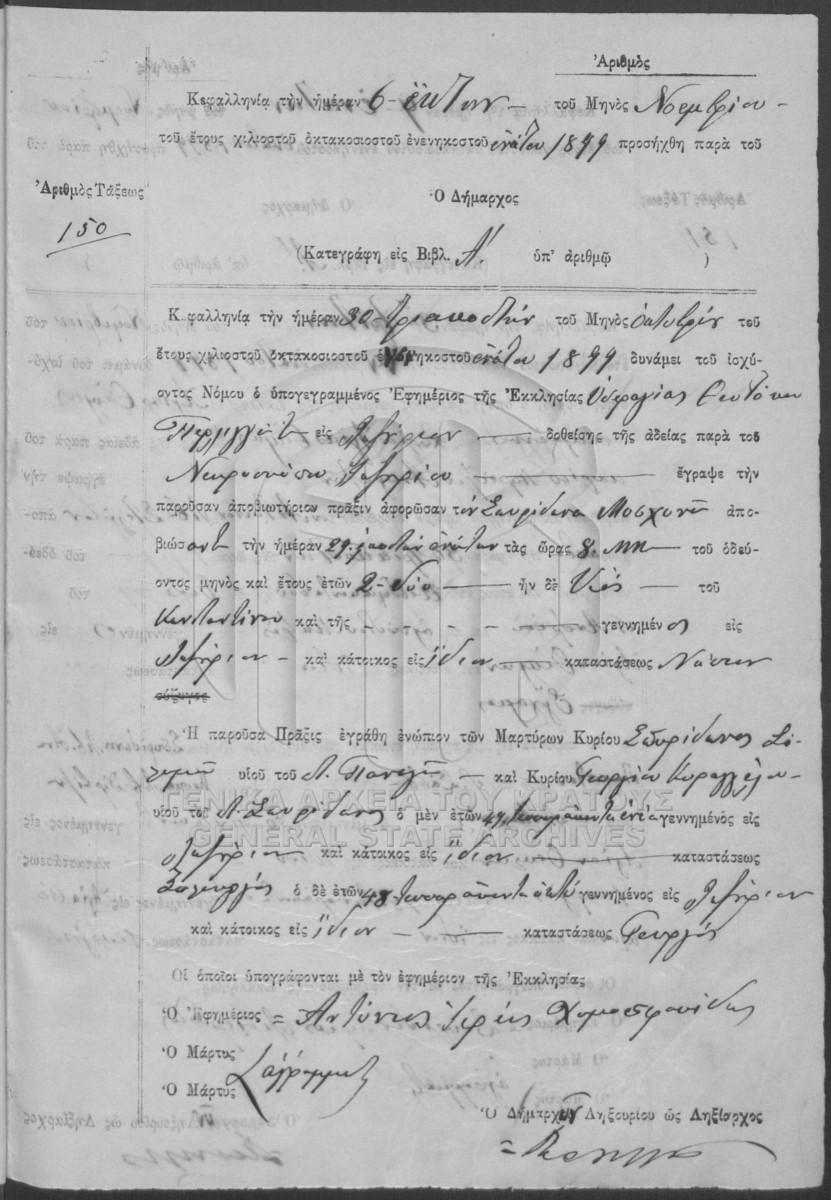 Ἀριθμὸς
Κεφαλληνίᾳ τὴν ἡμέραν 6 - ἕκτην τοῦ Μηνὸς Νοεμβρίου -
τοῦ ἔτους χιλιοστοῦ ὀκτακοσιοστοῦ ἐνενηκοστοῦ ἐνάτου 1899 προσήχθη παρὰ τοῦ
Ἀριθμὸς Τάξεως
150
Ὁ Δήμαρχος
(Κατεγράφη εἰς Βιβλ. Α'. ὑπ' ἀριθμῷ )
Κεφαλληνίᾳ τὴν ἡμέραν 30 - τριακοστὴν τοῦ Μηνὸς Ὀκτωβρίου τοῦ
ἔτους χιλιοστοῦ ὀκτακοσιοστοῦ ἐνενηκοστοῦ ἐνάτου 1899 δυνάμει τοῦ ἰσχύ-
οντος Νόμου ὁ ὑπογεγραμμένος Ἐφημέριος τῆς Ἐκκλησίας Ὑπεραγίας Θεοτόκου
εἰς Ληξούριον δοθείσης τῆς ἀδείας παρὰ τοῦ
Ληξουρίου ἔγραψε τὴν
παροῦσαν ἀποβιωτήριον πρᾶξιν ἀφορῶσαν τὸν Σπυρίδωνα Μοσχονᾶ ἀπο-
βιώσαντα τὴν ἡμέραν 29. ἐνάτην τὰς ὥρας 8. μμ τοῦ ὁδεύ-
οντος μηνὸς καὶ ἔτους ἐτῶν 2 - δύο ἦν δὲ Υἱὸς τοῦ
Κωνσταντίνου καὶ τῆς γεννημένος εἰς
Ληξούριον - καὶ κάτοικος εἰς ἴδιον καταστάσεως Νήπιον
σύζυγος
Ἡ παροῦσα Πρᾶξις ἐγράφη ἐνώπιον τῶν Μαρτύρων Κυρίου Σπυρίδωνος
υἱοῦ τοῦ Π. Παναγῆ καὶ Κυρίου Γεωργίου
υἱοῦ τοῦ Π. Σπυρίδωνος ὁ μὲν ἐτῶν 49 τεσσαράκοντα ἐννέα γεννημένος εἰς
ΓΕΝΙΚΑ ΑΡΧΕΙΑ ΤΟΥ ΚΡΑΤΟΥΣ
GENERAL STATE ARCHIVES
Ληξούριον καὶ κάτοικος εἰς ἴδιον καταστάσεως
ὁ δὲ ἐτῶν 48 τεσσαράκοντα ὀκτὼ γεννημένος εἰς Ληξούριον
καὶ κάτοικος εἰς ἴδιον - καταστάσεως Γεωργός
Οἱ ὁποῖοι ὑπογράφονται μὲ τὸν ἐφημέριον τῆς Ἐκκλησίας
Ὁ Ἐφημέριος = Ἀντώνιος Ἱερεὺς
Ὁ Μάρτυς
Ἀγράμματοι
Ὁ Μάρτυς
Ὁ Δήμαρχος Ληξουρίου ὡς Ληξίαρχος